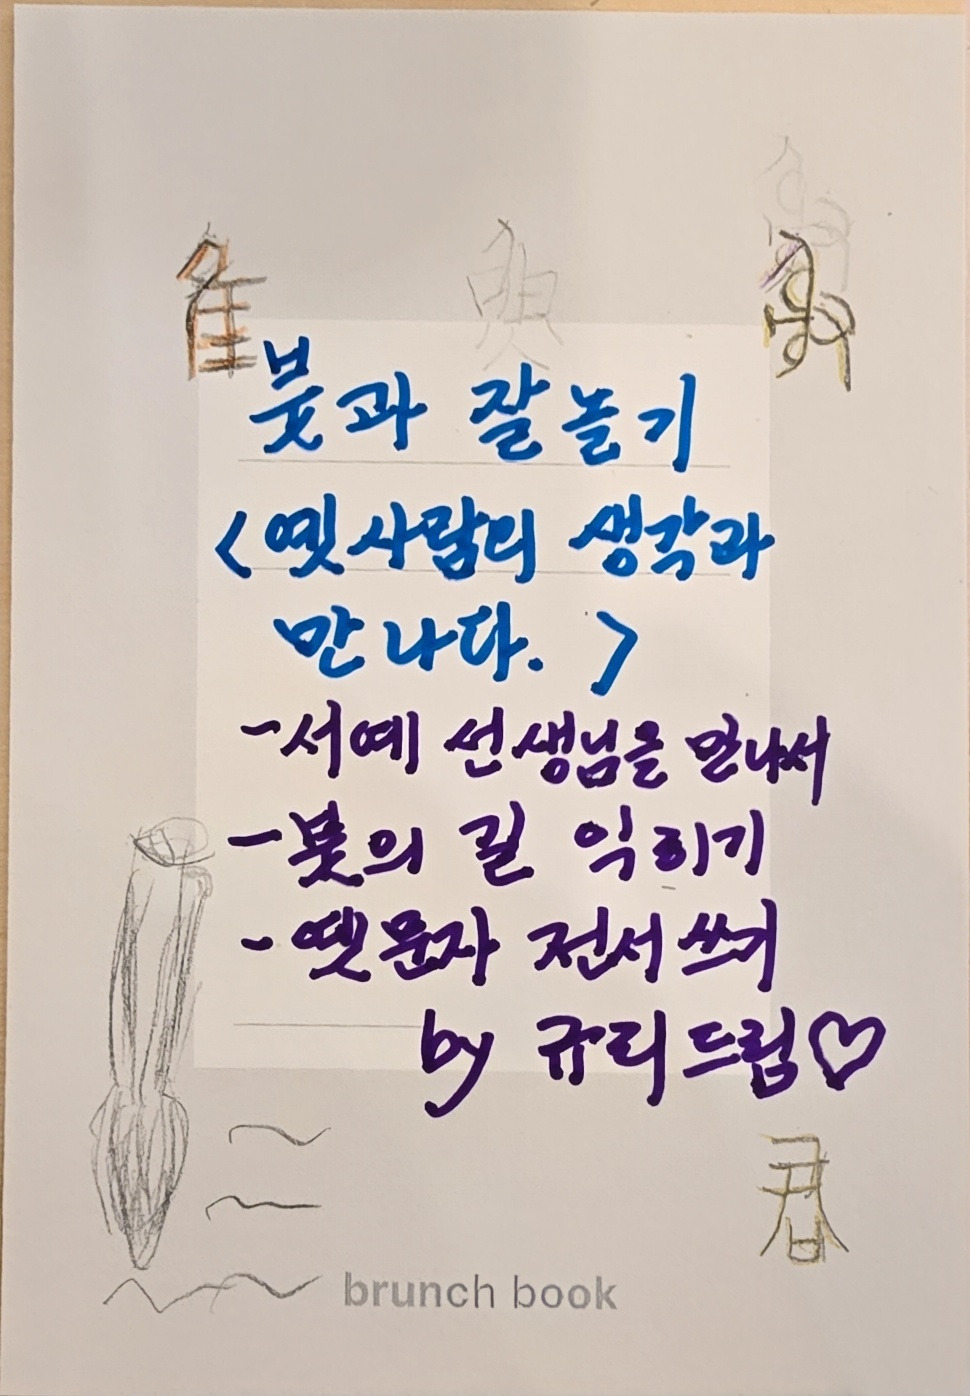 붓과 잘놀기
<옛사람의 생각과
만나다.>
-서예 선생님을 만나서
-붓의 길 익히기
-옛문자 전서 쓰기
by 규리드림♡
brunch book